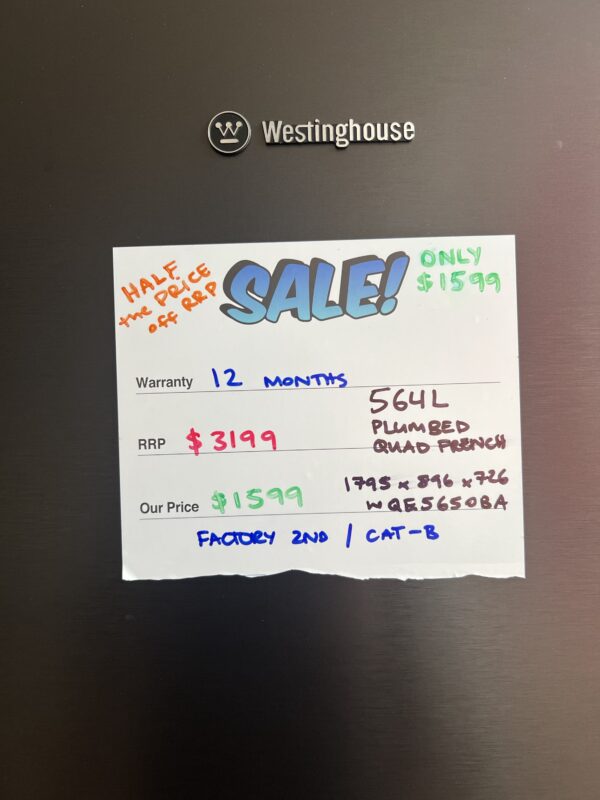 Westinghouse
HALF
the PRICE
off RRP
SALE!
ONLY
$1599
Warranty 12 MONTHS
564L
PLUMBED
RRP $3199
QUAD FRENCH
1795 x 896 x 726
Our Price $1599
WQE5650BA
FACTORY 2ND / CAT-B